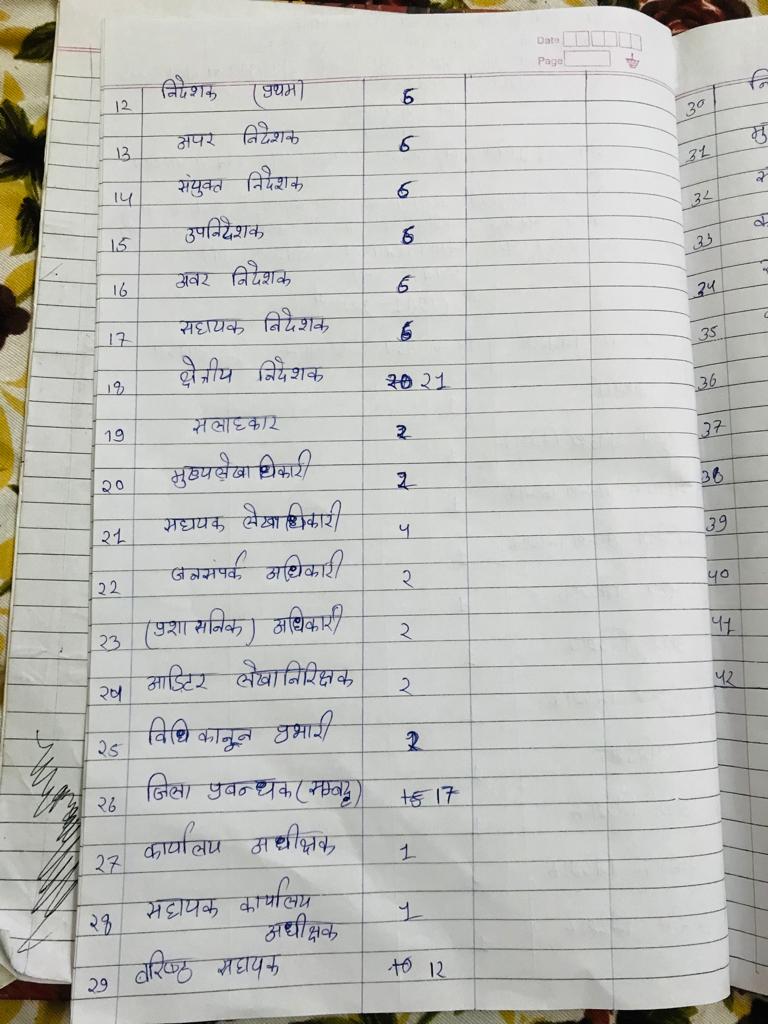 Date
Page
12 निदेशक (प्रथम) 6
13 अपर निदेशक 6
14 संयुक्त निदेशक 6
15 उपनिदेशक 6
16 अवर निदेशक 6
17 सहायक निदेशक 6
18 क्षेत्रीय निदेशक 20 21
19 सलाहकार 2
20 मुख्यलेखाधिकारी 2
21 सहायक लेखाधिकारी 4
22 जनसंपर्क अधिकारी 2
23 (प्रशासनिक) अधिकारी 2
24 आडिटर लेखानिरिक्षक 2
25 विधि कानून प्रभारी 2
26 जिला प्रबन्धक (सम्बद्ध) 15 17
27 कार्यालय अधीक्षक 1
28 सहायक कार्यालय 1
अधीक्षक
29 वरिष्ठ सहायक 10 12
30 नि
31 मु
32
33
34
35
36
37
38
39
40
41
42